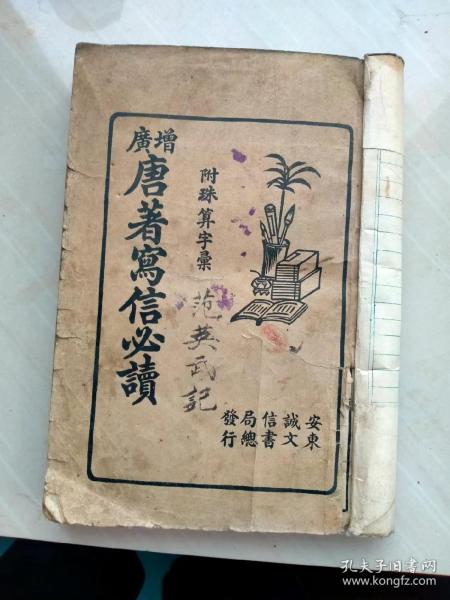 增廣
唐著寫信必讀
附珠算字彙
范英武記
安東
誠文
信書
局總
發行
孔夫子旧书网
www.kongfz.com